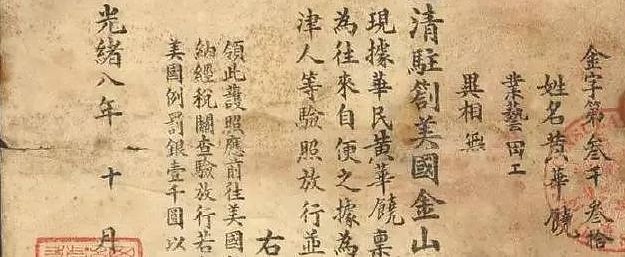 金字第叁千叁拾
姓名黃華饒
業藝田工
異相無
清駐劄美國金山
現據華民黃華饒稟
為往來自便之據為
津人等驗照放行並
右
領此護照應前往美國
納經稅關查驗放行若
美國例罰銀壹千圓以
光緒八年十月